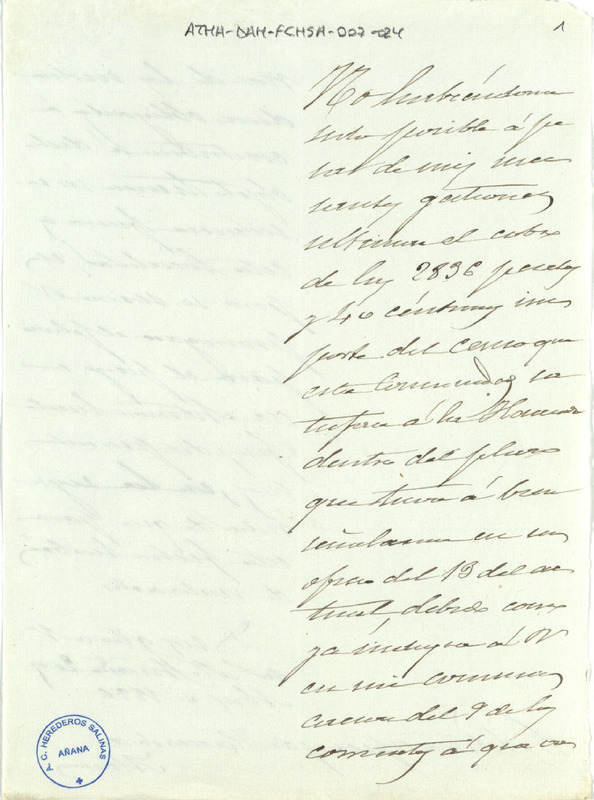 ATHA-DAH-FCHSA-007-024
1
No habiéndome
sido posible á pe
sar de mis ince
santes gestiones
ultimar el cobro
de las 2836 pesetas
y 40 céntimos im
porte del censo que
esta Comunidad sa
tisface á las Monjas
dentro del plazo
que tuvo á bien
señalarme en su
oficio del 13 del ac
tual, debido como
ya indiqué á V
en mi comuni
cacion del 9 de los
corrientes á que
Y C. HEREDEROS SALINAS
AÑANA